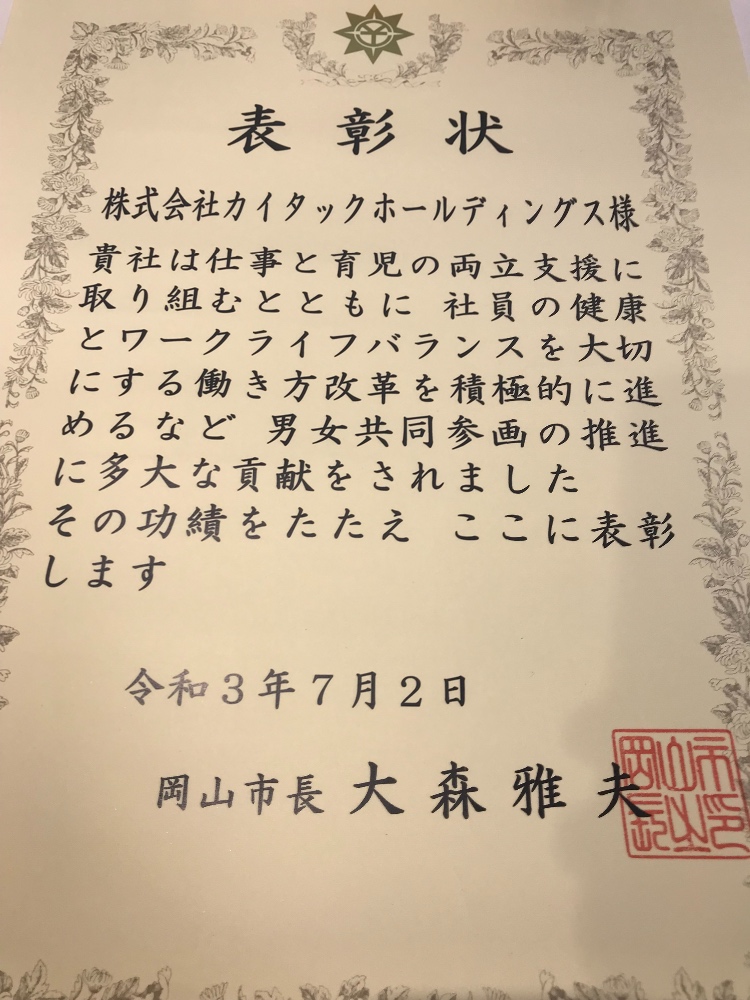 表彰状
株式会社カイタックホールディングス様
貴社は仕事と育児の両立支援に
取り組むとともに 社員の健康
とワークライフバランスを大切
にする働き方改革を積極的に進
めるなど 男女共同参画の推進
に多大な貢献をされました
その功績をたたえ ここに表彰
します
令和3年7月2日
岡山市長 大森雅夫
岡山市長之印